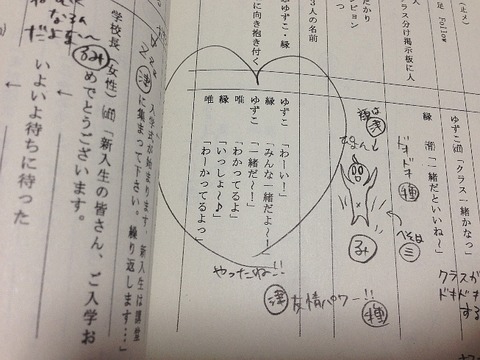 (止メ)
足 Follow
ラス分け掲示板に人
だかり
ピョン
3人の名前
ゆずこ・縁
に向き抱き付く
ゆずこ
「クラス一緒かなっ」
縁
「一緒だといいね~」
ドキドキ
種
へそは
三
ぴょんっ
津
るみ
ゆずこ 「わーい!」
縁 「みんな一緒だよ~!」
ゆずこ 「一緒だ~!」
唯 「わかってるよ」
縁 「いっしょ~♪」
唯 「わーかってるよっ」
やったね!!
津
友情パワー!!
種
クラスが
ドキドキ
する
入学式が始まります。新入生は講堂
に集まって下さい。繰り返します…」
津
学校長(女性)
「新入生の皆さん、ご入学お
めでとうございます。
いよいよ待ちに待った
るみ